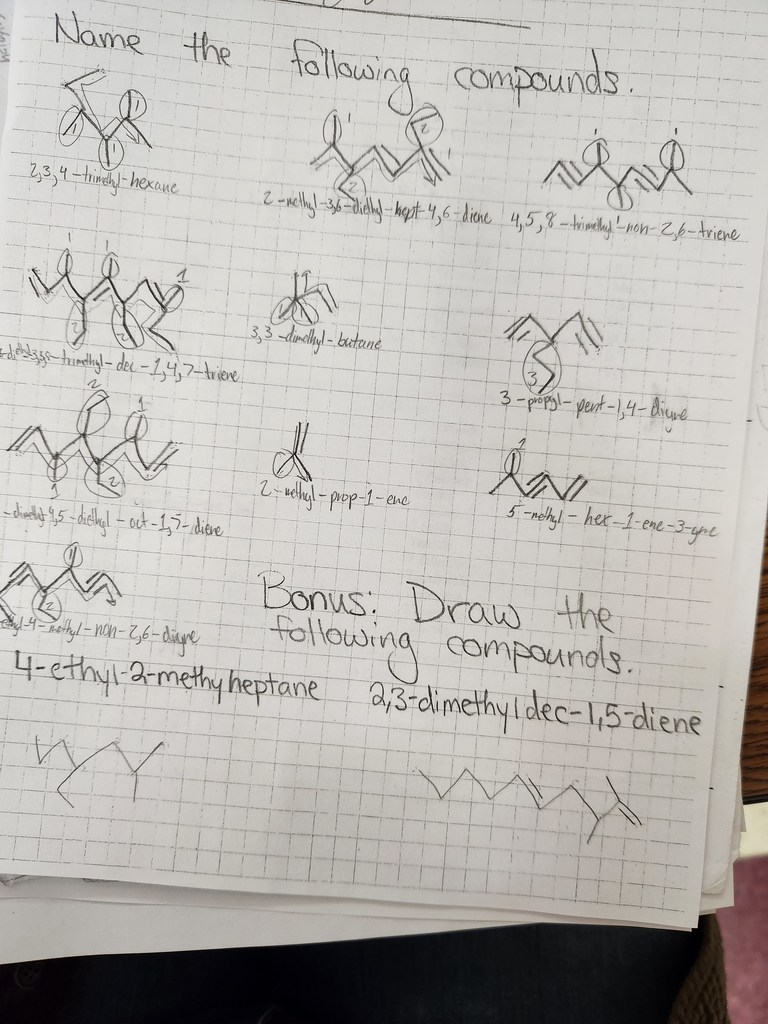 Name the following compounds.
2,3,4-trimethyl-hexane
2-methyl-3,6-diethyl-hept-4,6-diene
4,5,8-trimethyl-non-2,6-triene
-trimethyl-dec-1,4,7-triene
3,3-dimethyl-butane
3-propyl-pent-1,4-diyne
-4,5-diethyl-oct-1,7-diene
2-methyl-prop-1-ene
5-methyl-hex-1-ene-3-yne
-4-methyl-non-2,6-diyne
Bonus: Draw the
following compounds.
4-ethyl-2-methylheptane
2,3-dimethyldec-1,5-diene